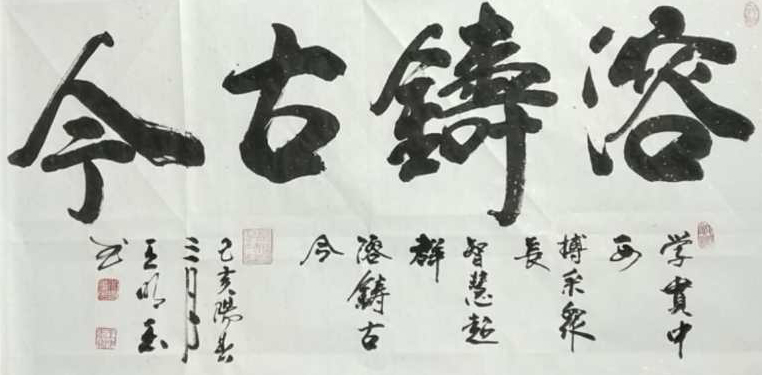 溶鑄古今
学貫中
西
搏采衆
長
智慧超
群
溶鑄古
今
己亥陽春
三月
王明
书